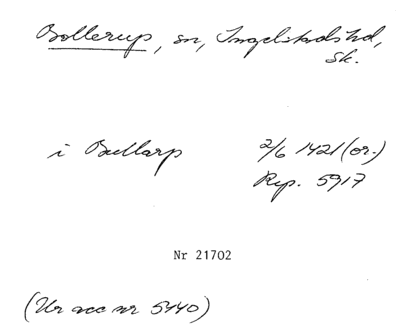 Bollerup, sn, Ingelstads hd,
Sk.
i Bullarp 2/6 1421 (or.)
Rep. 5917
Nr 21702
(Ur acc nr 5440)